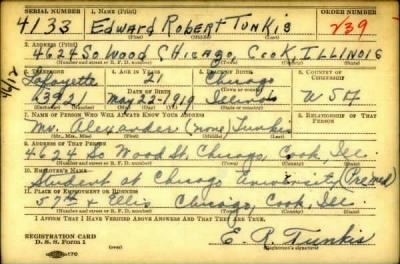 SERIAL NUMBER 1. NAME (Print) ORDER NUMBER
4133 Edward Robert Tunkis 239
2. ADDRESS (Print)
4624 So Wood CHicago, Cook ILLINOIS
(Number and street or R. F. D. number) (Town) (County) (State)
3. TELEPHONE 4. AGE IN YEARS 5. PLACE OF BIRTH 6. COUNTRY OF CITIZENSHIP
Lafayette 21 Chicago
DATE OF BIRTH
3921 May 22-1919 Ill USA
7. NAME OF PERSON WHO WILL ALWAYS KNOW YOUR ADDRESS 8. RELATIONSHIP OF THAT PERSON
Alexander (none) Tunkis
(Mr., Mrs., Miss) (First) (Middle) (Last)
9. ADDRESS OF THAT PERSON
4624 So. Wood St, Chicago, Cook, Ill.
(Number and street or R. F. D. number) (Town) (County) (State)
10. EMPLOYER'S NAME
Student at Chicago University (Premed)
11. PLACE OF EMPLOYMENT OR BUSINESS
57th & Ellis Chicago, Cook, Ill.
(Number and street or R. F. D. number) (Town) (County) (State)
I AFFIRM THAT I HAVE VERIFIED ABOVE ANSWERS AND THAT THEY ARE TRUE.
REGISTRATION CARD
D. S. S. Form 1 E. R. Tunkis
(Registrant's signature)